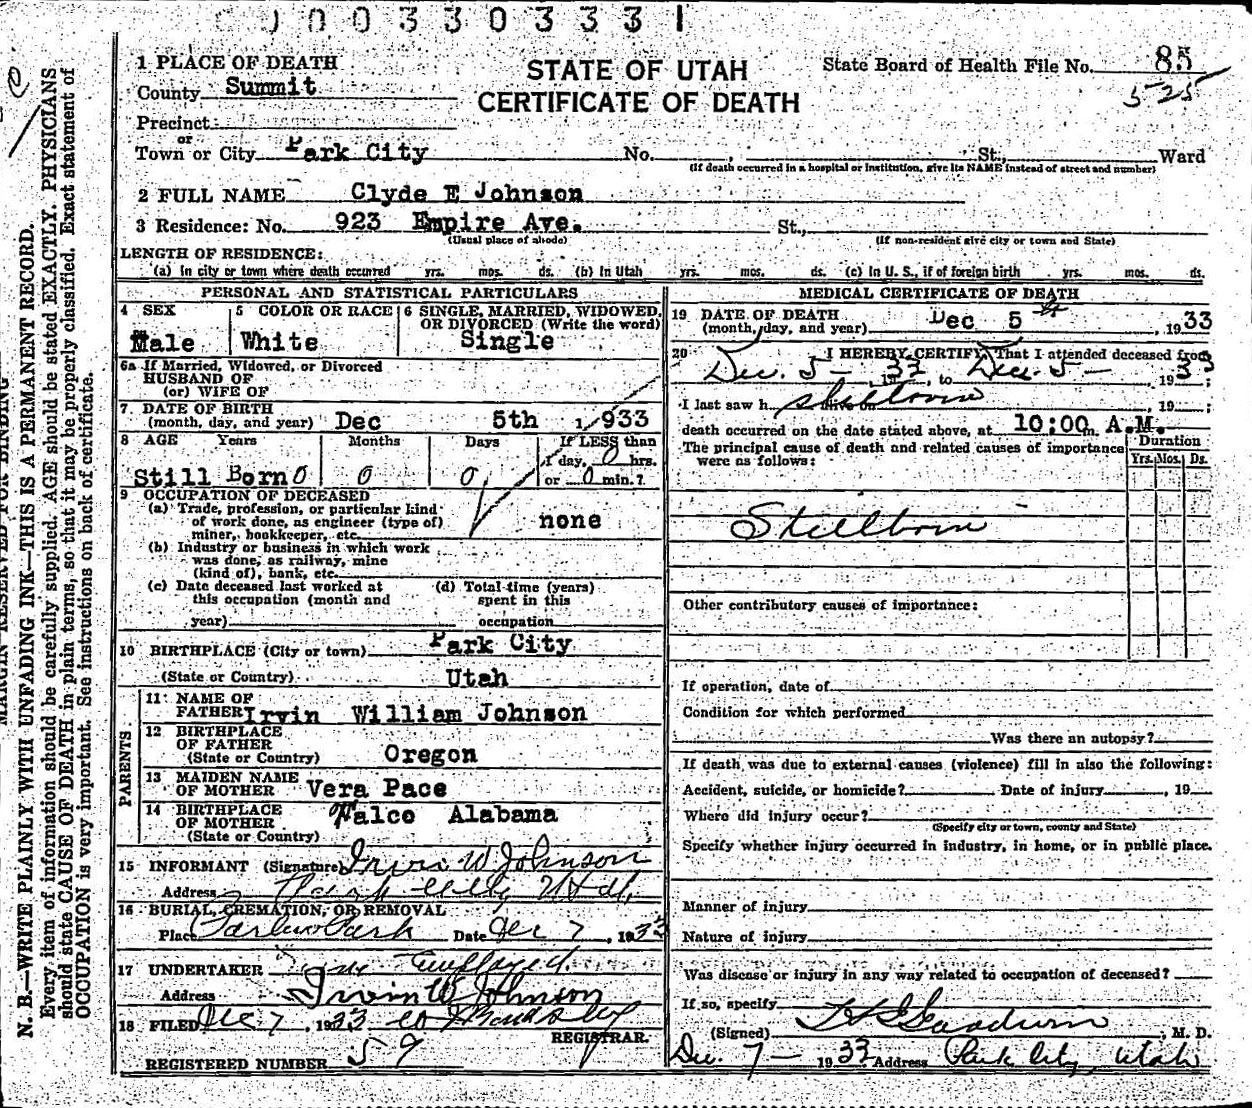 003303331
1 PLACE OF DEATH
STATE OF UTAH
CERTIFICATE OF DEATH
State Board of Health File No. 85
525
County Summit
Precinct
or
Town or City Park City No. , St., Ward
(If death occurred in a hospital or institution, give its NAME instead of street and number)
2 FULL NAME Clyde E Johnson
3 Residence: No. 923 Empire Ave. St.,
(Usual place of abode) (If non-resident give city or town and State)
LENGTH OF RESIDENCE:
(a) In city or town where death occurred yrs. mos. ds. (b) In Utah yrs. mos. ds. (c) In U. S., if of foreign birth yrs. mos. ds.
PERSONAL AND STATISTICAL PARTICULARS
4 SEX
Male
5 COLOR OR RACE
White
6 SINGLE, MARRIED, WIDOWED, OR DIVORCED (Write the word)
Single
6a If Married, Widowed, or Divorced
HUSBAND OF
(or) WIFE OF
7. DATE OF BIRTH
(month, day, and year) Dec 5th 1933
8 AGE Years Months Days If LESS than
1 day, 0 hrs.
Still Born 0 0 0 or 0 min.?
9 OCCUPATION OF DECEASED
(a) Trade, profession, or particular kind
of work done, as engineer (type of)
miner, bookkeeper, etc. none
(b) Industry or business in which work
was done, as railway, mine
(kind of), bank, etc.
(c) Date deceased last worked at
this occupation (month and
year)
(d) Total time (years)
spent in this
occupation
10 BIRTHPLACE (City or town) Park City
(State or Country) Utah
PARENTS
11 NAME OF
FATHER Irvin William Johnson
12 BIRTHPLACE
OF FATHER
(State or Country) Oregon
13 MAIDEN NAME
OF MOTHER Vera Pace
14 BIRTHPLACE
OF MOTHER
(State or Country) Falco Alabama
15 INFORMANT (Signature) Irvin W Johnson
Address Park City Utah
16 BURIAL, CREMATION, OR REMOVAL
Place Date Dec 7, 1933
17 UNDERTAKER employed
Address Irvin W Johnson
18 FILED Dec 7, 1933
REGISTRAR.
REGISTERED NUMBER 59
MEDICAL CERTIFICATE OF DEATH
19 DATE OF DEATH
(month, day, and year) Dec 5th, 1933
20 I HEREBY CERTIFY, That I attended deceased from
Dec. 5 - 33, to Dec. 5 -, 1933;
I last saw h alive on stillborn, 19 ;
death occurred on the date stated above, at 10:00 m. A.M.
The principal cause of death and related causes of importance
were as follows:
Duration
Yrs. Mos. Ds.
Stillborn
Other contributory causes of importance:
If operation, date of
Condition for which performed
Was there an autopsy?
If death was due to external causes (violence) fill in also the following:
Accident, suicide, or homicide? Date of injury , 19
Where did injury occur?
(Specify city or town, county and State)
Specify whether injury occurred in industry, in home, or in public place.
Manner of injury
Nature of injury
Was disease or injury in any way related to occupation of deceased?
If so, specify
(Signed) Goodwin, M. D.
Dec. 7 - 1933 Address Park City, Utah
MARGIN RESERVED FOR BINDING
N. B.—WRITE PLAINLY WITH UNFADING INK—THIS IS A PERMANENT RECORD.
Every item of information should be carefully supplied. AGE should be stated EXACTLY. PHYSICIANS
should state CAUSE OF DEATH in plain terms, so that it may be properly classified. Exact statement of
OCCUPATION is very important. See instructions on back of certificate.